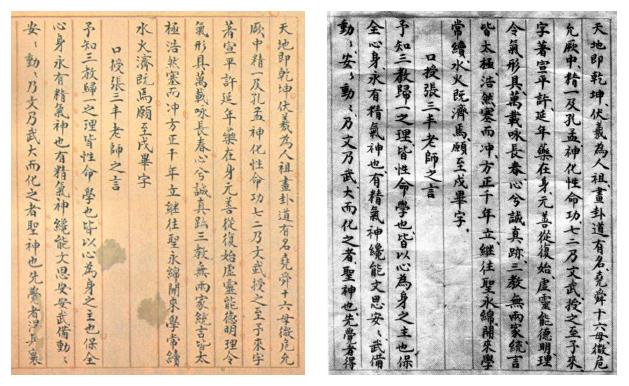 天地即乾坤伏羲為人祖畫卦道有名堯舜十六母微危允
厥中精一及孔孟神化性命功七二乃文武授之至予來字
著宣平許延年藥在身元善從復始虛靈能德明理令
氣形具萬載咏長春心兮誠真跡三教無兩家統言皆太
極浩然塞而冲方正千年立繼往聖永綿開來學常續
水火濟既焉願至戌畢字
口授張三丰老師之言
予知三教歸一之理皆性命學也皆以心為身之主也保全
心身永有精氣神也有精氣神纔能文思安安武備動ヽ
安ヽ動ヽ乃文乃武大而化之者聖神也先覺者得其寰
天地即乾坤、伏羲為人祖、畫卦道有名、堯舜十六母、微危
允厥中、精一及孔孟神化性命功七二乃文武授之至予來
字著宣平許延年藥在身元善從復始虛靈能德明理
令氣形具萬載咏長春心兮誠真跡三教無兩家統言
皆太極浩然塞而冲、方正千年立繼往聖永綿開來學
常續水火既濟焉願至戌畢字、
口授張三丰老師之言
予知三教歸一之理皆性命學也皆以心為身之主也保
全心身永有精氣神也有精氣神纔能文思安ヽ武備
動ヽ安ヽ動ヽ乃文乃武大而化之者聖神也先覺者得